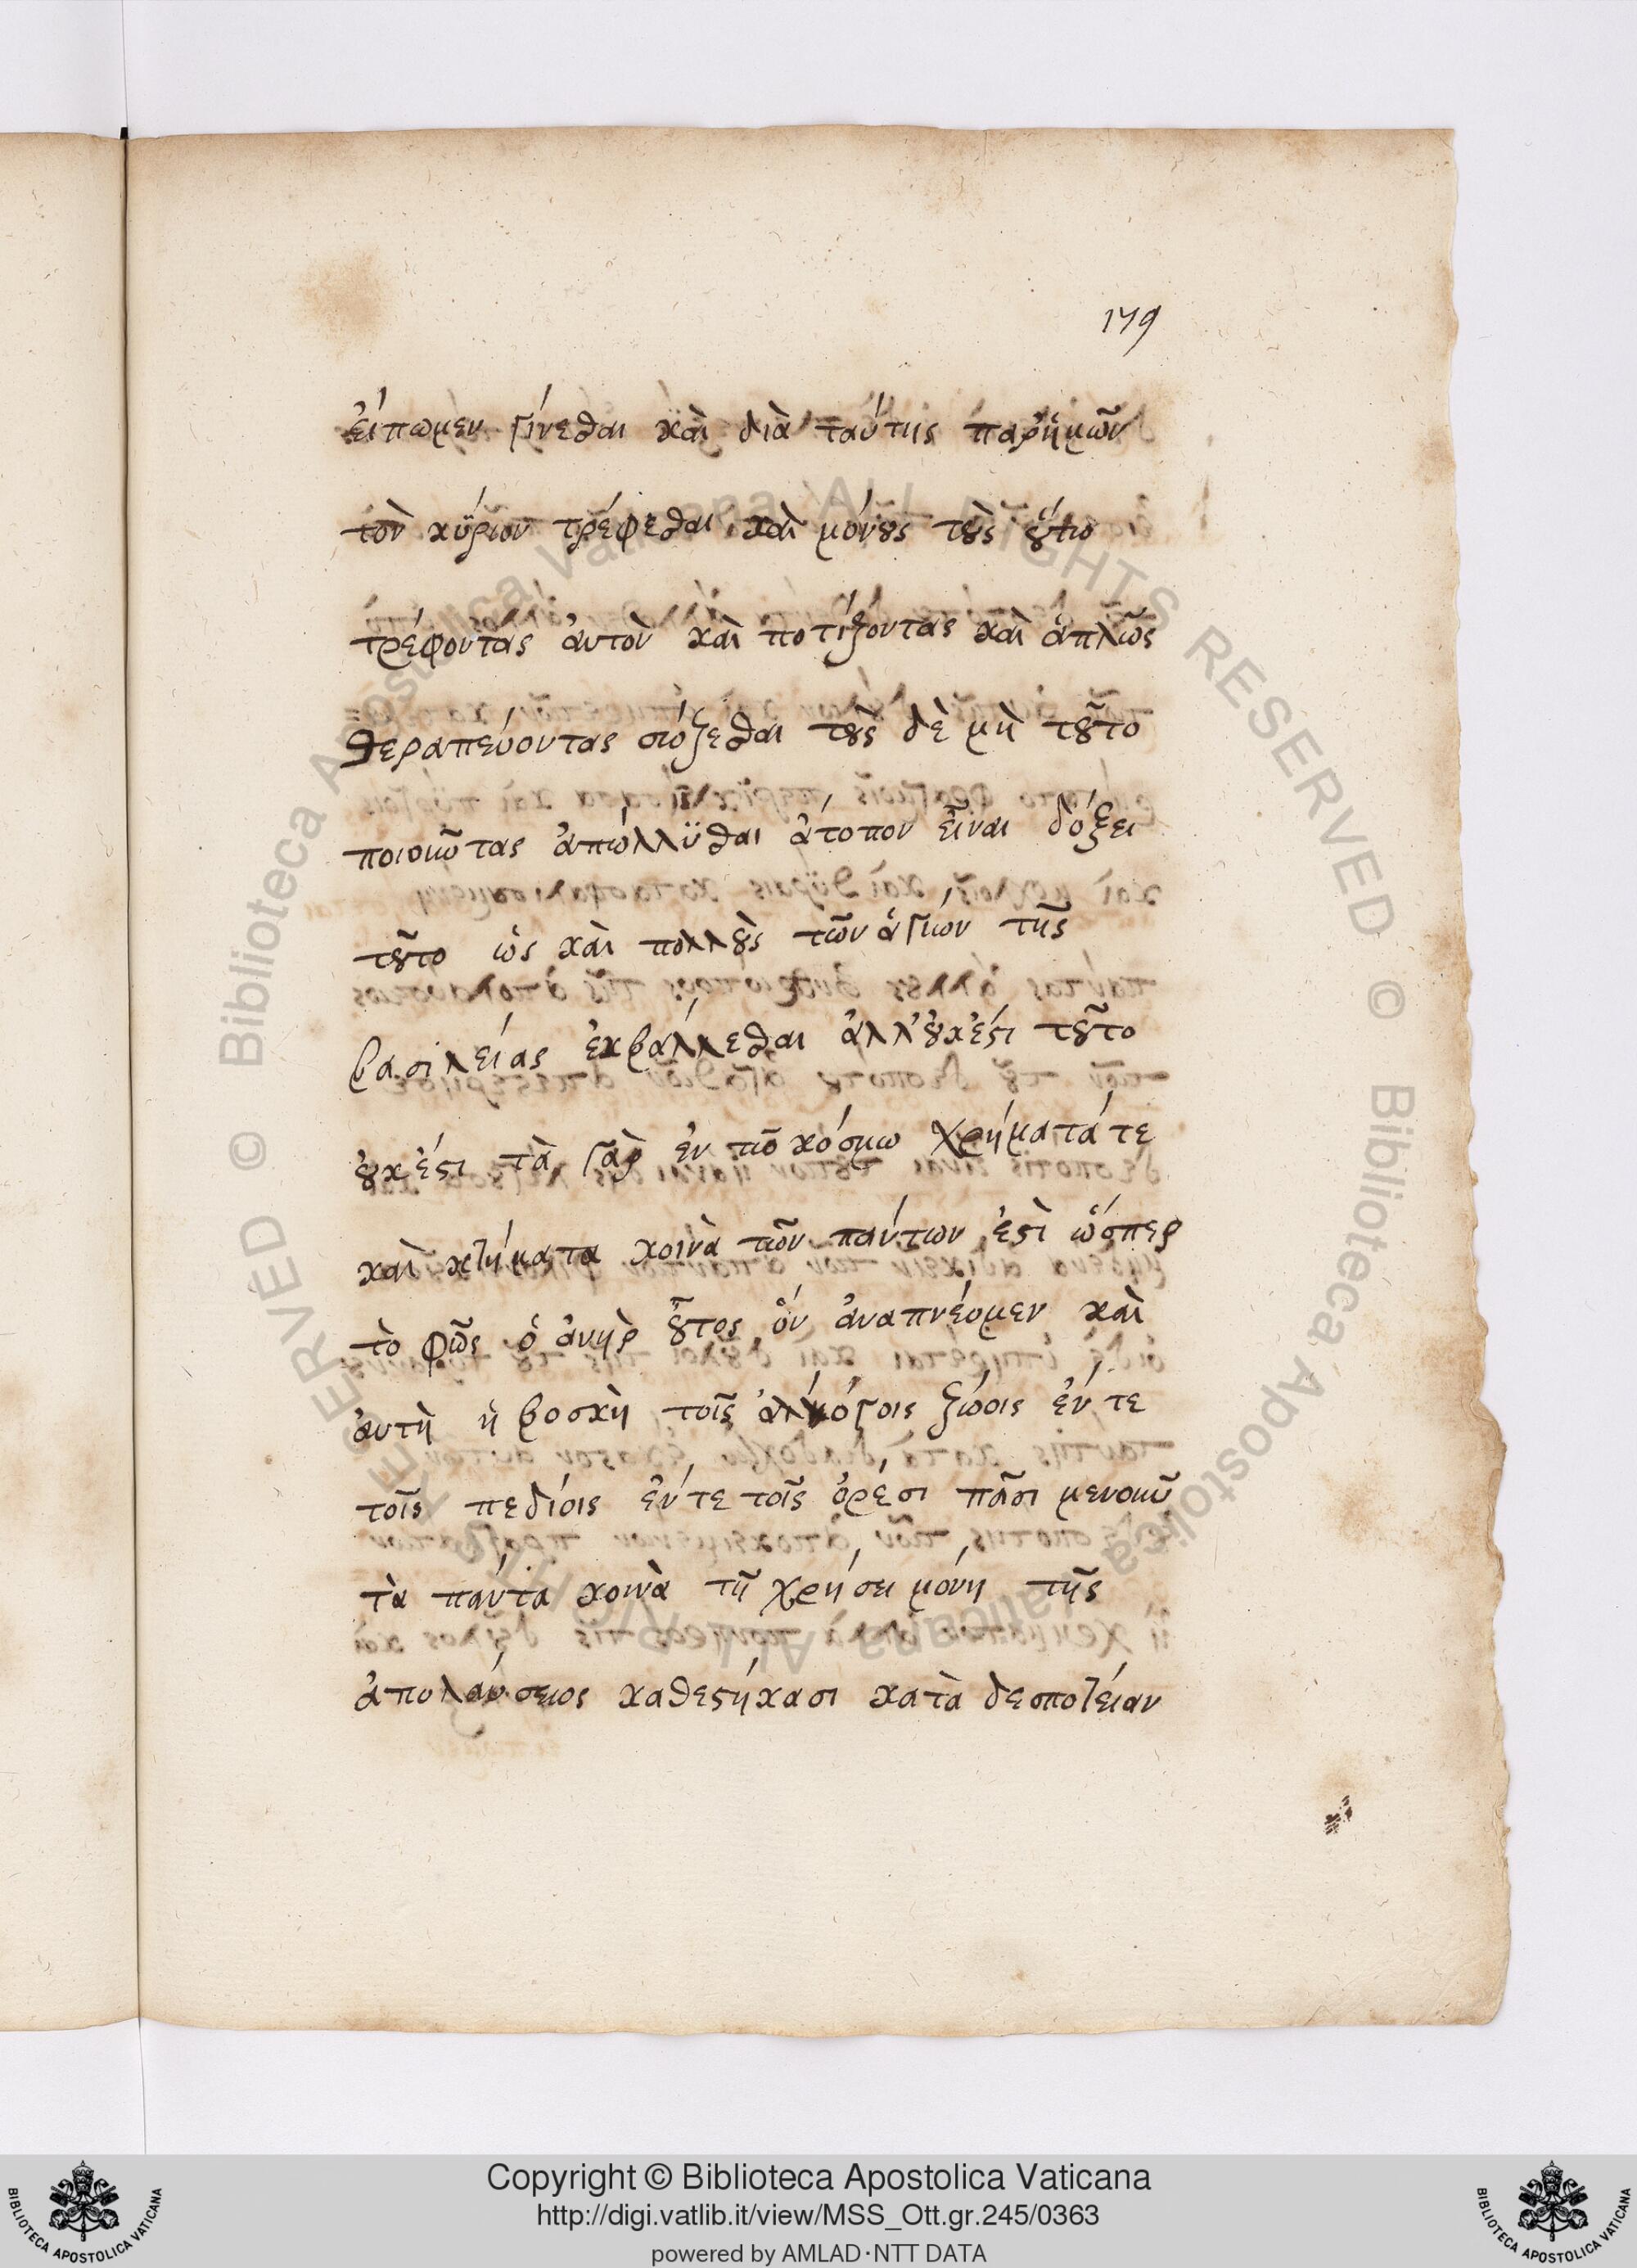 179
εἴπωμεν γίνεσθαι καὶ διὰ ταύτης παρ' ἡμῶν
τὸν κύριον τρέφεσθαι, καὶ μόνους τοὺς οὕτω
τρέφοντας αὐτὸν καὶ ποτίζοντας καὶ ἁπλῶς
θεραπεύοντας σώζεσθαι τοὺς δὲ μὴ τοῦτο
ποιοῦντας ἀπώλλϋσθαι ἄτοπον εἶναι δόξει
τοῦτο ὡς καὶ πολλοὺς τῶν ἁγίων τῆς
βασιλείας ἐκβάλλεσθαι ἀλλ' οὐκ ἔστι τοῦτο
οὐκ ἔστι τὰ γὰρ ἐν τῶ κόσμω χρήματά τε
καὶ κτήματα κοινὰ τῶν πάντων ἐστὶ ὥσπερ
τὸ φῶς ὁ ἀνὴρ οὗτος ὃν ἀναπνέομεν καὶ
αὐτὴ ἡ βοσκὴ τοῖς ἀλόγοις ζώοις ἔν τε
τοῖς πεδίοις ἔν τε τοῖς ὄρεσι πᾶσι μενοῦν
τὰ πάντα κοινὰ τῆ χρήσει μόνη τῆς
ἀπολαύσεως καθεστήκασι κατὰ δεσποτείαν
Copyright © Biblioteca Apostolica Vaticana
http://digi.vatlib.it/view/MSS_Ott.gr.245/0363
powered by AMLAD·NTT DATA
BIBLIOTECA APOSTOLICA VATICANA
BIBLIOTECA APOSTOLICA VATICANA